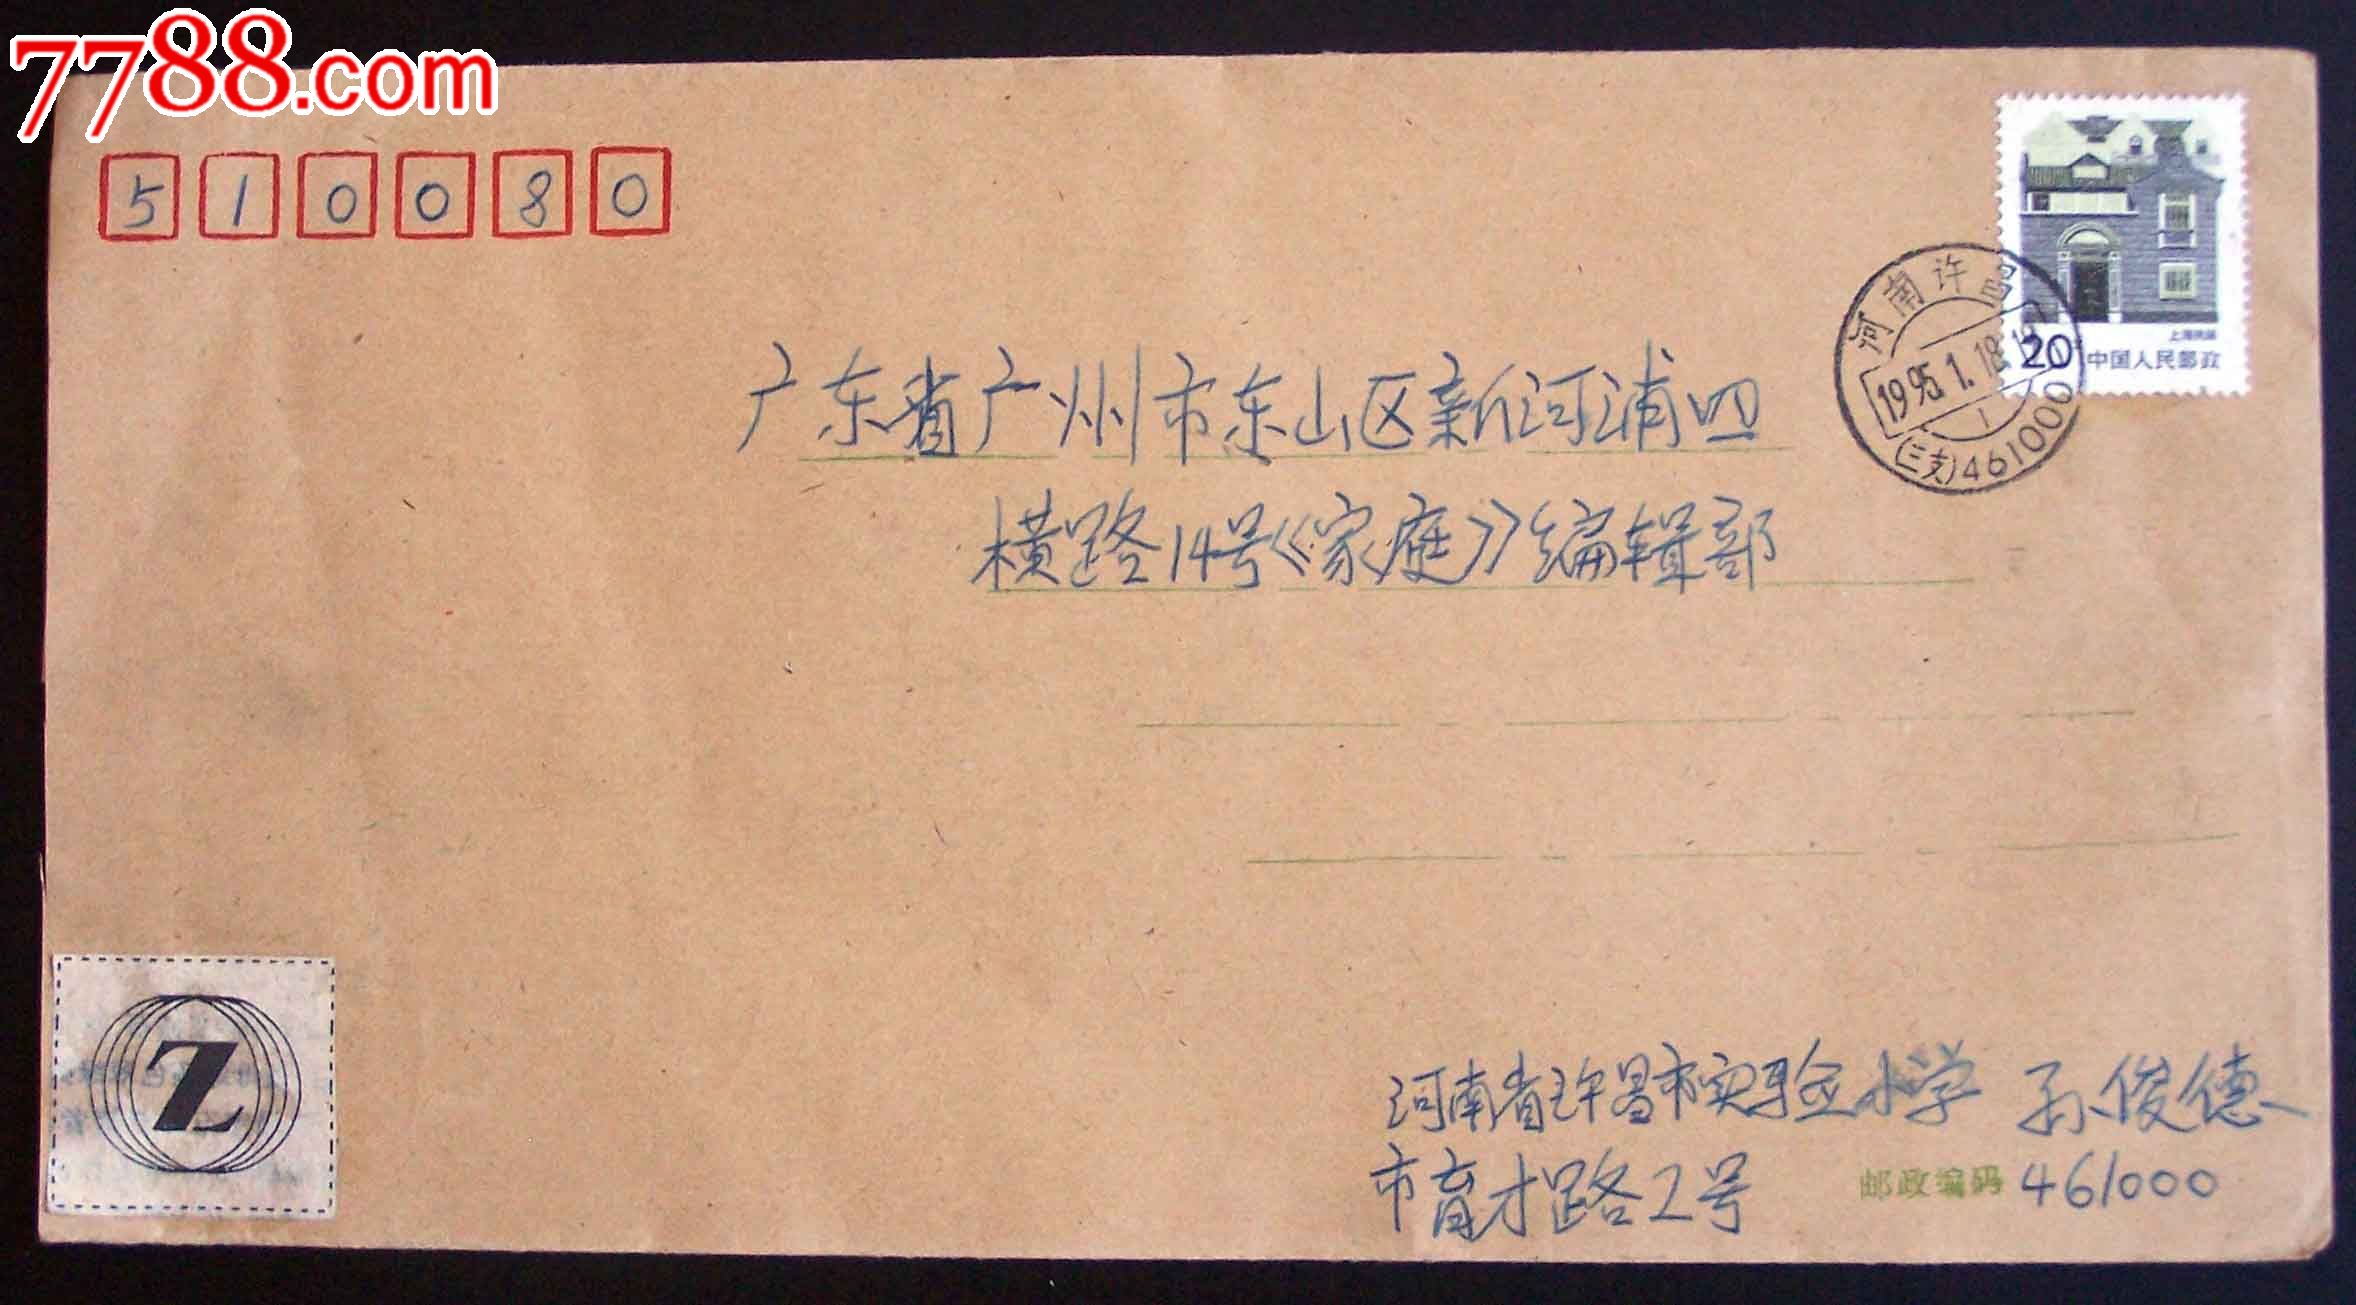 7788.com
510080
上海民居
20 中国人民邮政
河南许昌
1995.1.18.19
1
(三支)461000
广东省广州市东山区新河浦四
横路14号《家庭》编辑部
Z
河南省许昌市实验小学 孙俊德
市育才路2号
邮政编码 461000